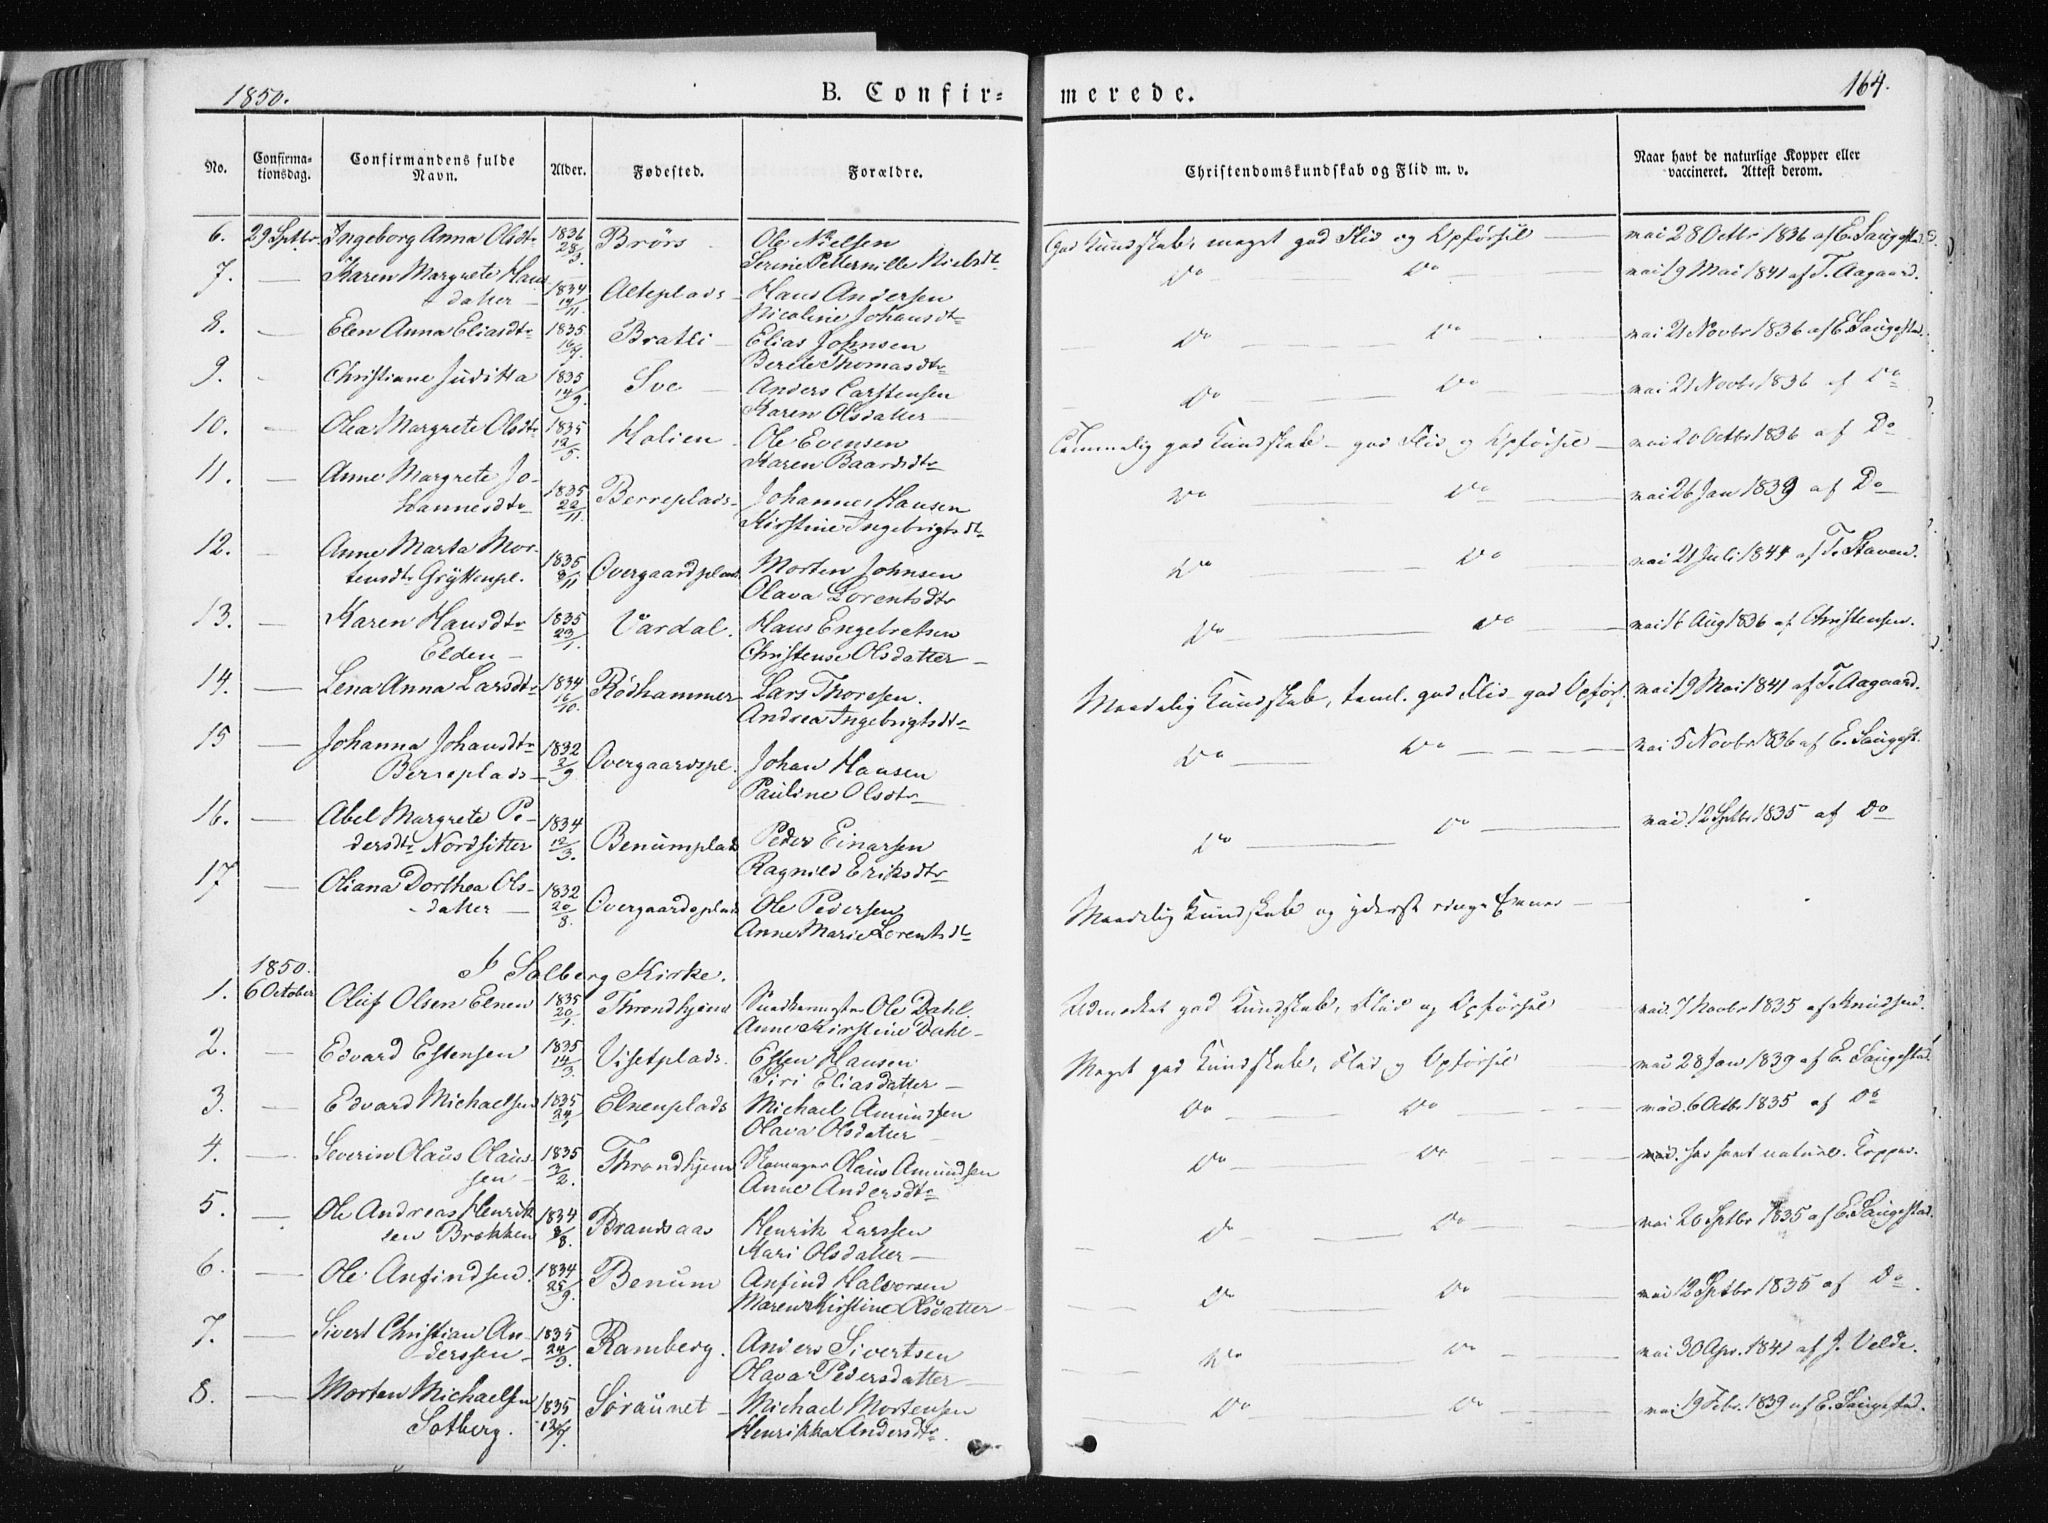 1850. B. Confir- merede. 164.
No. Confirma-tionsdag. Confirmandens fulde Navn. Alder. Fødested. Forældre. Christendomskundskab og Flid m. v. Naar havt de naturlige Kopper eller vaccineret. Attest derom.
6. 29 Sptbr. Ingeborg Anna Olsdtr 1836 28/3. Brörs Ole Nielsen God Kundskab, meget god Flid og Opførsel vai 28 Octbr 1836 af E. Saugestad.
Serine Petternille Nielsdtr
7. — Karen Margrete Hans- 1834 14/11. Alteplads Hans Andersen Do Do vai 19 Mai 1841 af T. Aagaard.
datter — Nicoline Johansdtr
8. — Elen Anna Eliasdtr 1835 16/7 Bratli Elias Johnsen Do Do vai 21 Novbr 1836 af E. Saugestad.
Berete Thomasdtr
9. Christiane Juditta 1835 14/9. Sve Anders Carstensen Do Do vai 21 Novbr 1836 af Do
Karen Olsdatter
10. — Olea Margrete Olsdtr 1835 12/5. Holien Ole Evensen Temmelig god Kundskab – god Flid og Opførsel vai 20 Octbr 1836 af Do
Karen Baardsdtr
11. — Anne Margrete Jo- 1835 22/11. Berreplads Johannes Hansen Do Do vai 26 Jan 1839 af Do
hannesdtr Kirstine Ingebrigtsdtr
12. — Anne Marta Mor- 1835 8/11 Overgaardsplads Morten Johnsen Do Do vai 21 Juli 1844 af T. Staven.
tensdtr Gryttenpl. Olava Lorentsdtr
13. — Karen Hansdtr 1835 23/1. Vårdal. Hans Engebretsen Do Do vai 16 Aug 1836 af Christensen.
Elden — Christense Olsdatter
14. — Lena Anna Larsdtr 1834 16/10. Rödhammer Lars Thoresen. Maadelig Kundskab, teml. god Flid – god Opførs. vai 19 Mai 1841 af T. Aagaard.
Andrea Ingebrigtsdtr
15 — Johanna Johansdtr 1832 2/9. Overgaardspl. Johan Hansen Do Do vai 5 Novbr 1836 af E. Saugest.
Berreplads — Pauline Olsdtr
16. — Abel Margrete Pe- 1834 12/3. Benumplads Peder Einarsen Do Do vai 12 Sptbr 1835 af Do
dersdtr Nordsitter Ragnild Eriksdtr
17 — Oliana Dorthea Ols- 1832 20/8. Overgaardsplads Ole Pedersen Maadelig Kundskab og yderst ringe Evner
datter — Anne Marie Lorentsdtr
1850. I Salberg Kirke.
1. 6 October Oluf Olsen Elnen 1835 20/1. Throndhjem Ole Dahl. Udmærket god Kundskab, Flid og Opførsel vai 7 Novbr 1835 af Knudsen.
Anne Kirstine Dahl
2. — Edvard Estensen 1835 14/3. Visetplads. Esten Hansen Meget god Kundskab, Flid og Opførsel vai 28 Jan 1839 af E. Saugestad.
Siri Eliasdatter —
3. — Edvard Michaelsen 1835 24/1 Elnenplads Michael Amundsen Do Do vai 6 Octbr 1835 af Do
Olava Olsdatter
4. — Severin Olaus Olaus- 1835 3/2. Throndhjem Skomager Olaus Amundsen Do Do har havt naturl. Kopper.
sen — Anne Andersdtr
5. — Ole Andreas Henrik- 1834 8/8. Brandsaas Henrik Larssen Do Do vai 20 Sptbr 1835 af E. Saugestad.
sen Brækken Kari Olsdatter —
6. — Ole Anfindsen. 1834 25/9. Benum Anfind Halvorsen Do Do vai 12 Sptbr 1835 af Do.
Maren Kirstine Olsdatter
7. — Sivert Christian An- 1835 24/3. Ramberg. Anders Sivertsen Do Do vai 30 Apr. 1841 af J. Velde.
derssen — Olava Pedersdatter
8. — Morten Michaelsen 1835 12/7. Söraunet Michael Mortensen Do Do vai 19 Febr. 1839 af E. Saugestad.
Salberg. Henrikka Andersdtr.